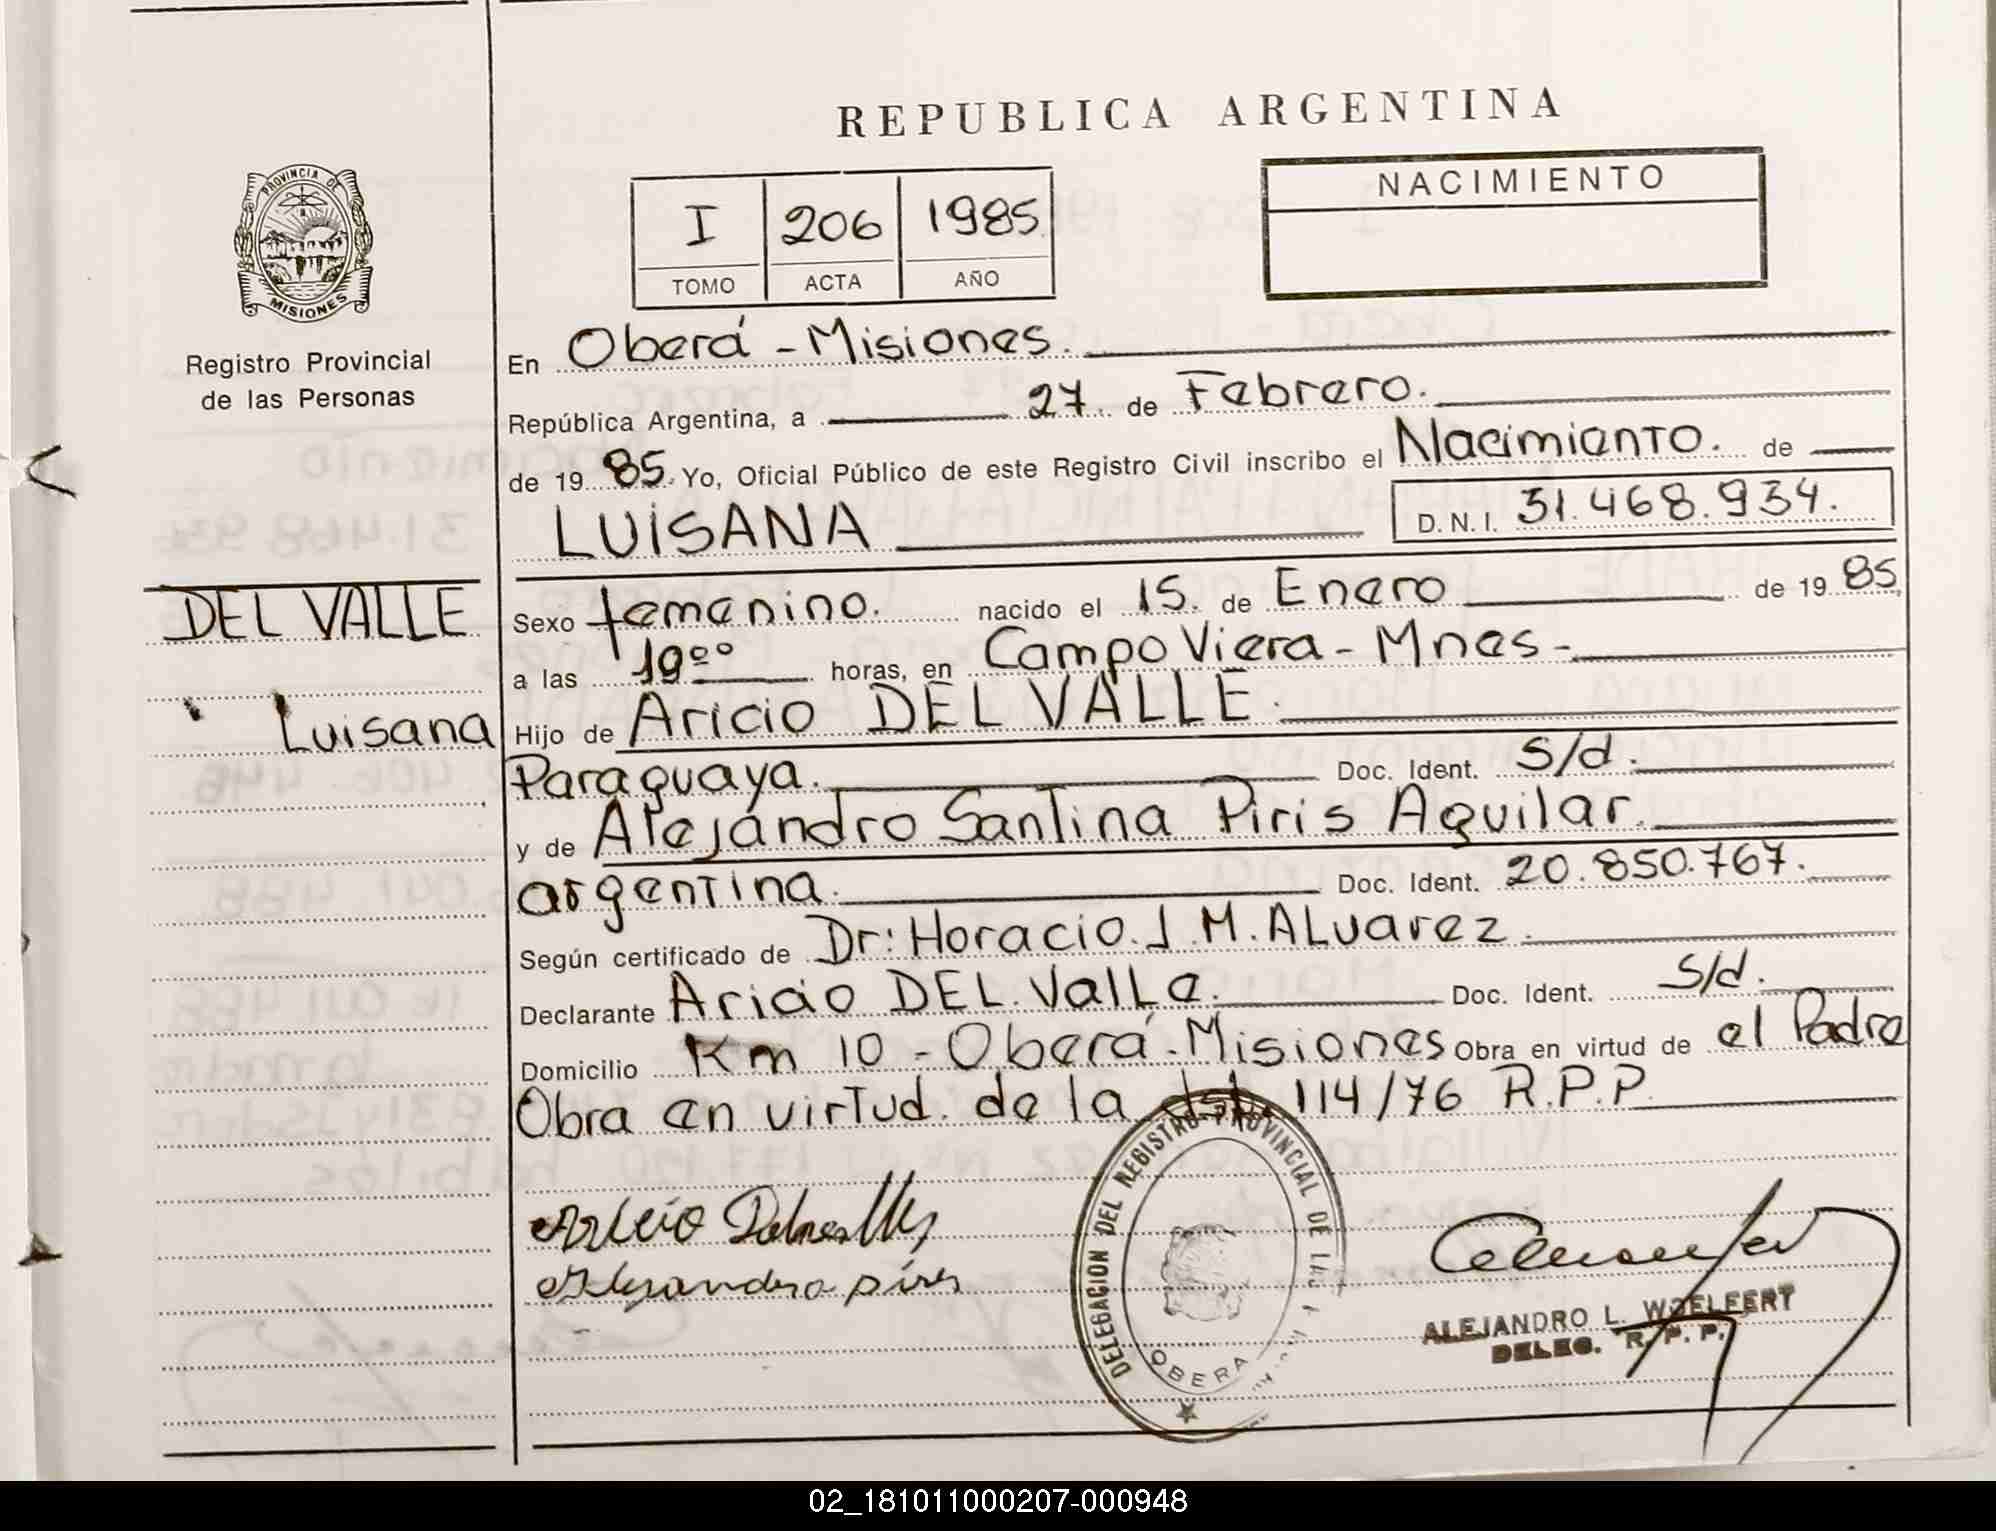 REPUBLICA ARGENTINA
PROVINCIA DE
MISIONES
Registro Provincial
de las Personas
I 206 1985
TOMO ACTA AÑO
NACIMIENTO
En Oberá - Misiones.
República Argentina, a 27 de Febrero.
de 19 85. Yo, Oficial Público de este Registro Civil inscribo el Nacimiento. de
LUISANA D.N.I. 31.468.934.
DEL VALLE
Luisana
Sexo femenino. nacido el 15. de Enero de 19 85
a las 19ºº horas, en Campo Viera - Mnes -
Hijo de Aricio DEL VALLE.
Paraguaya. Doc. Ident. S/d.
y de Alejandro Santina Piris Aquilar.
argentina. Doc. Ident. 20.850.767.
Según certificado de Dr: Horacio. J. M. ALvarez.
Declarante Aricio DEL. Valle. Doc. Ident. S/d.
Domicilio Km 10 - Oberá - Misiones Obra en virtud de el Padre
Obra en virtud. de la 114/76 R.P.P.
DELEGACION DEL REGISTRO PROVINCIAL DE
OBERA
Alejandra piris
ALEJANDRO L. WOELFERT
DELEG. R.P.P.
02_181011000207-000948